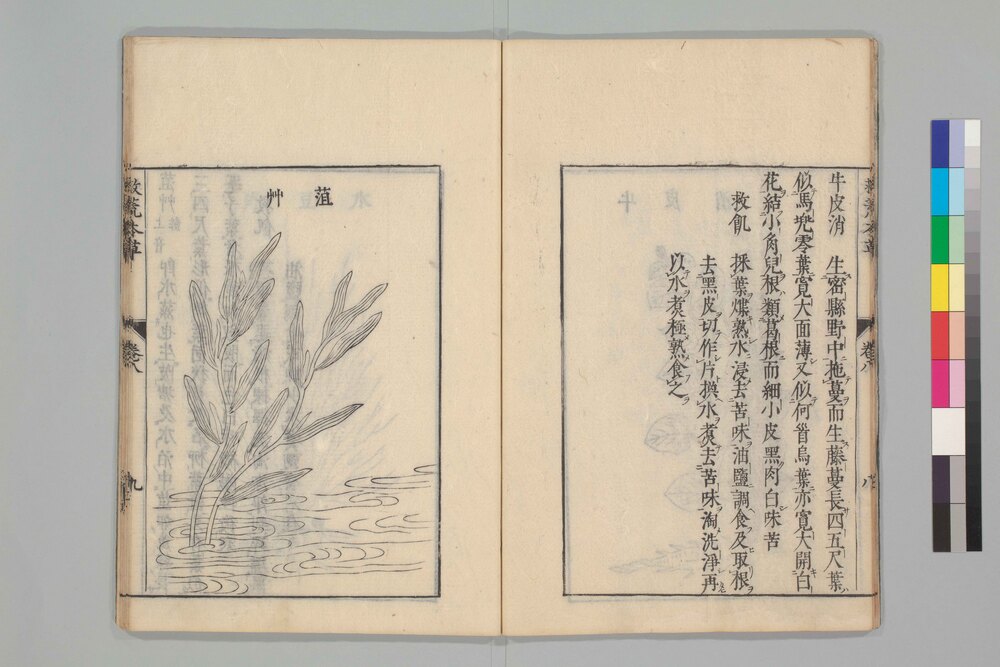 牛皮消　生密縣野中拖蔓而生藤蔓長四五尺葉
似馬兜零葉寬大而薄又似何首烏葉亦寬大開白
花結小角兒根類葛根而細小皮黑肉白味苦
救飢　採葉煠熟水浸去苦味油鹽調食及取根
去黑皮切作片換水煮去苦味淘洗淨再
以水煮極熟食之
卷八
八
菹艸
救荒本草
卷八
九